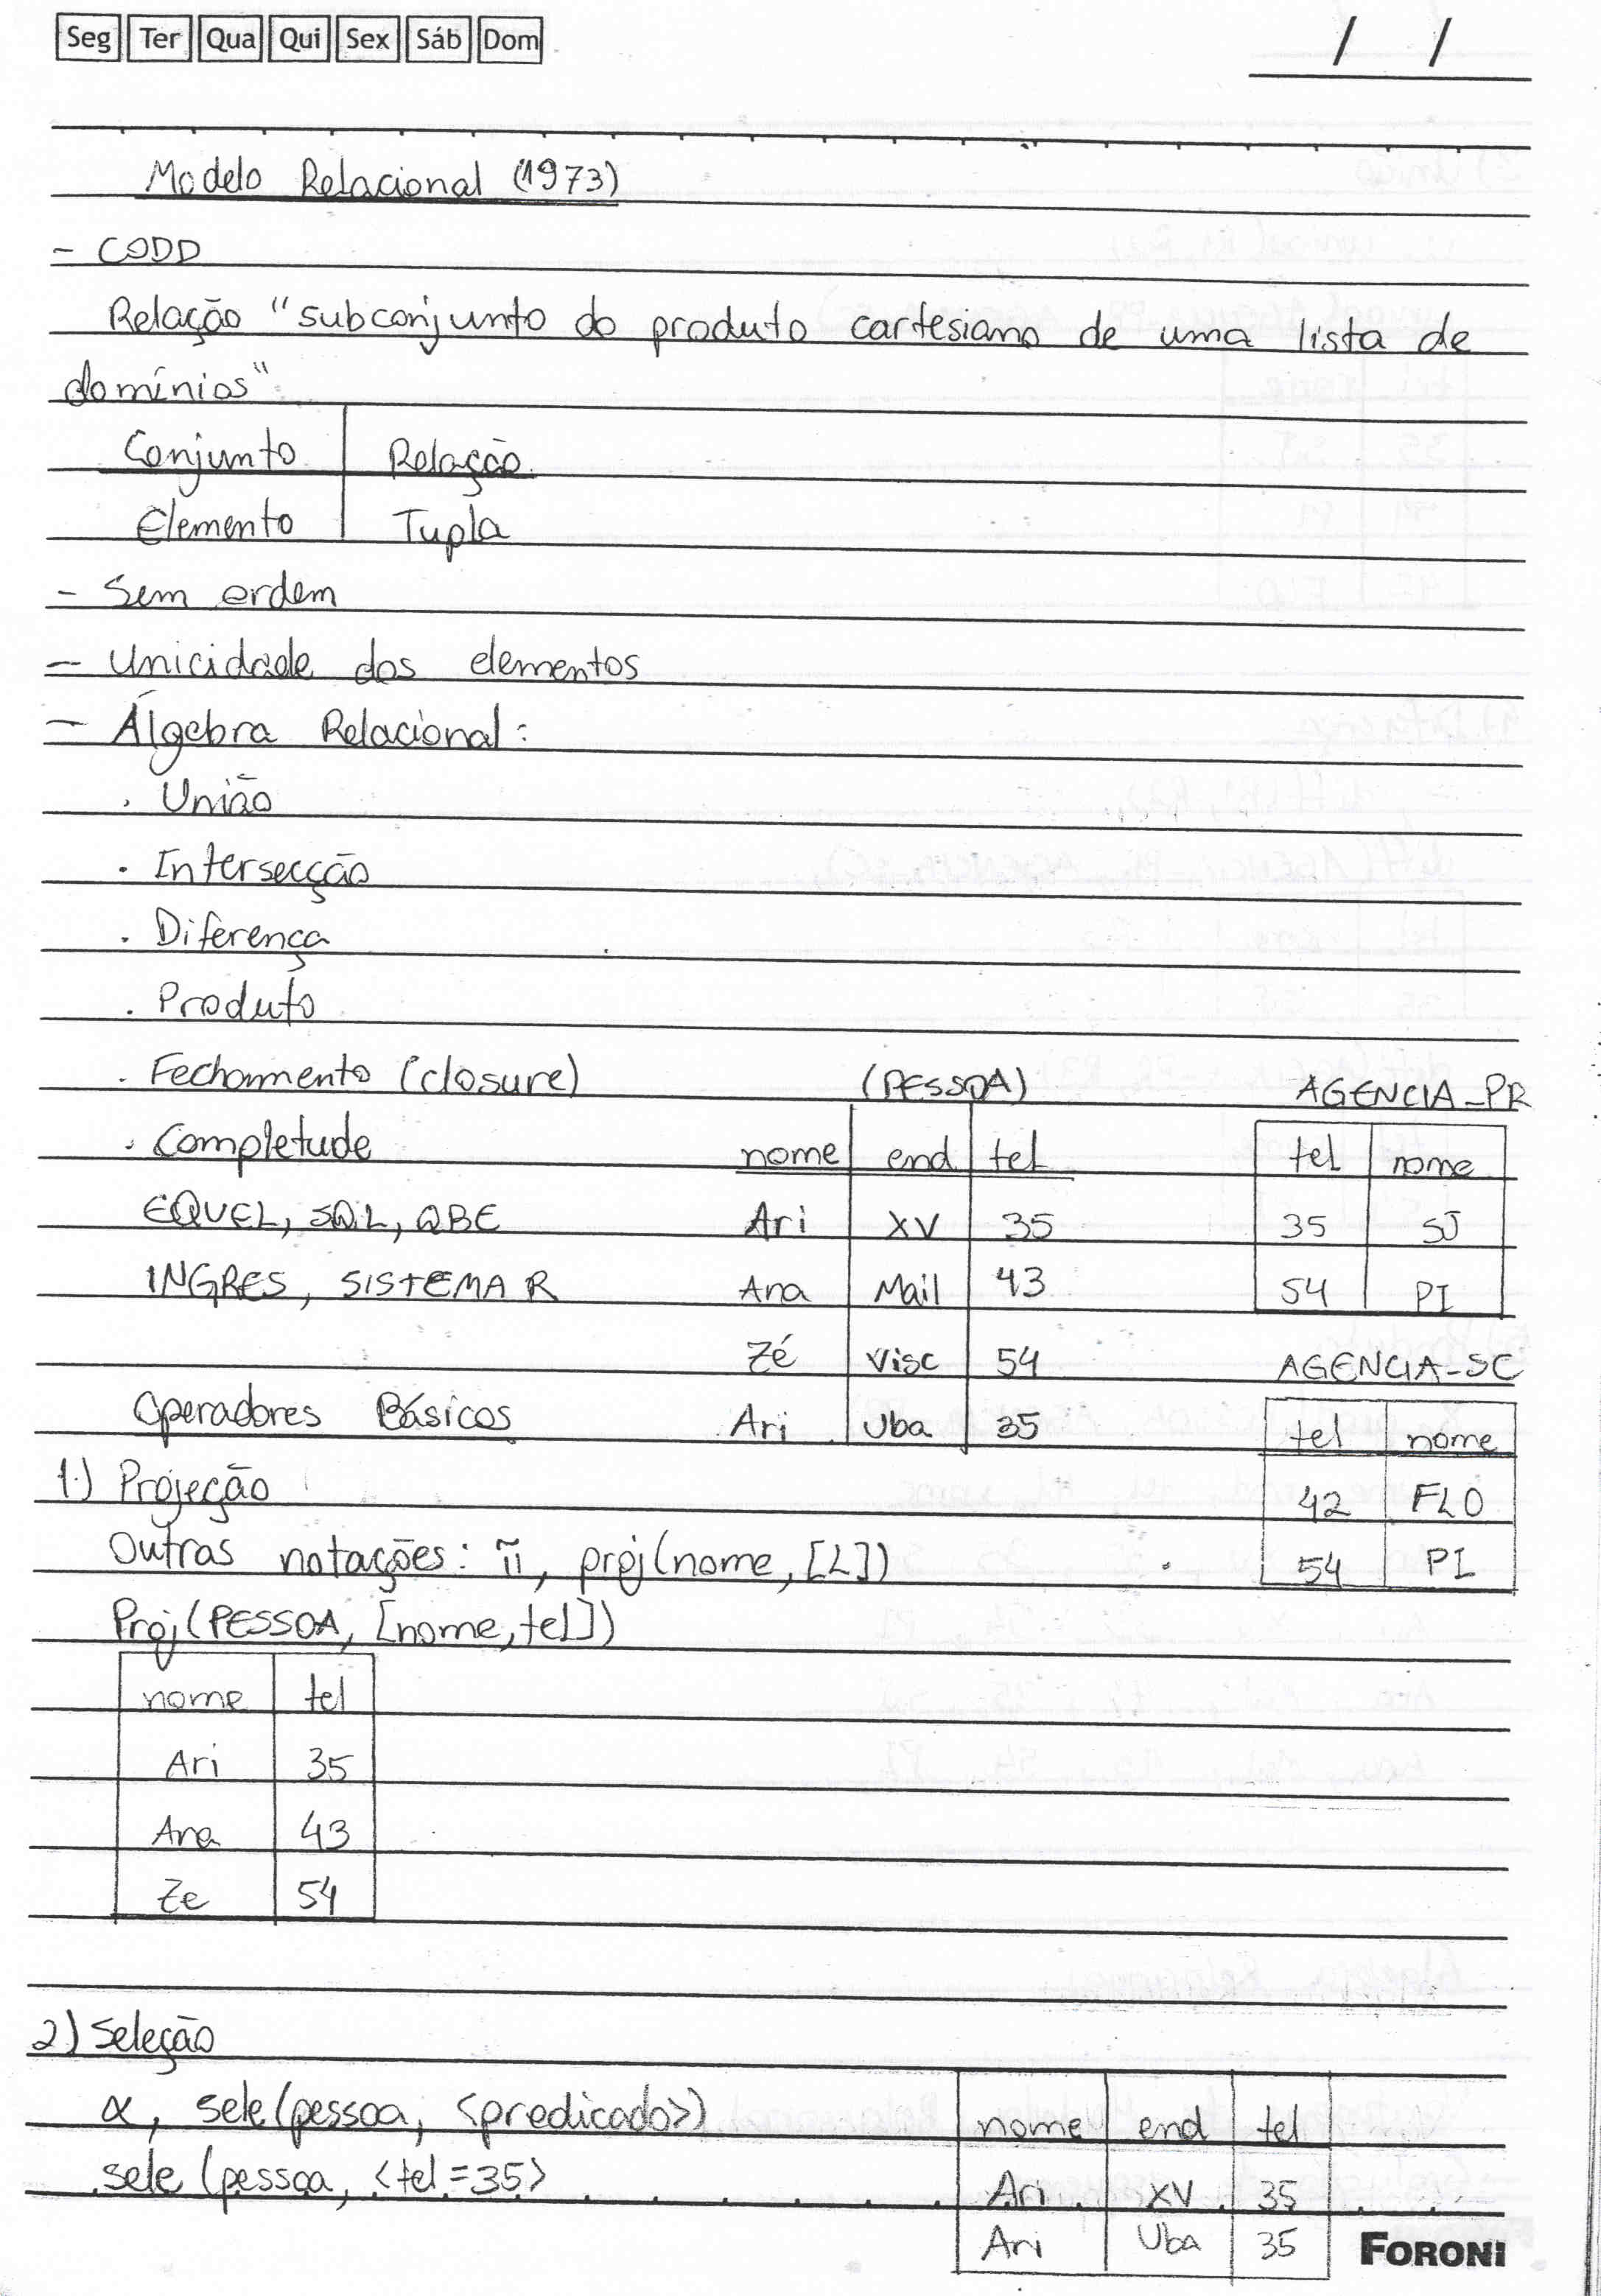 Seg Ter Qua Qui Sex Sáb Dom
/ /
Modelo Relacional (1973)
- CODD
Relação "subconjunto do produto cartesiano de uma lista de
domínios"
Conjunto Relação
Elemento Tupla
- Sem ordem
- Unicidade dos elementos
- Álgebra Relacional:
. União
. Intersecção
. Diferença
. Produto
. Fechamento (closure)
. Completude
EQUEL, SQL, QBE
INGRES, SISTEMA R
(PESSOA)
nome end tel
Ari XV 35
Ana Mail 43
Zé Visc 54
Ari Uba 35
AGENCIA_PR
tel nome
35 SJ
54 PI
AGENCIA_SC
tel nome
42 FLO
54 PI
Operadores Básicos
1) Projeção
Outras notações: π, proj(nome, [L])
Proj(PESSOA, [nome, tel])
nome tel
Ari 35
Ana 43
Ze 54
2) Seleção
α, sele(pessoa, <predicado>)
sele (pessoa, <tel=35>
nome end tel
Ari XV 35
Ari Uba 35
FORONI